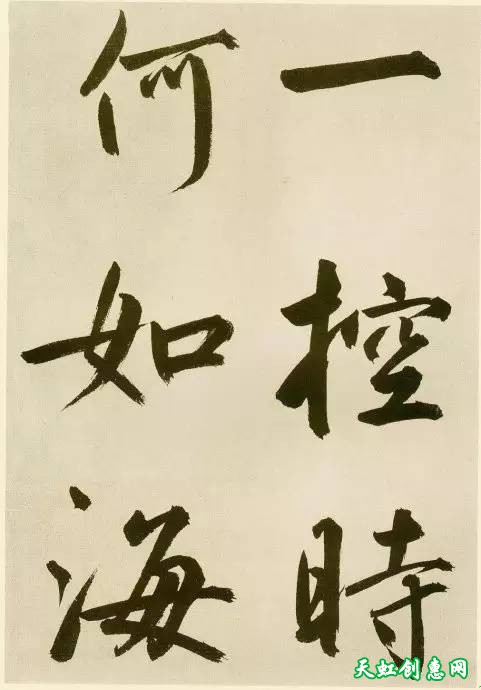 一控時
何如海
天虹创惠网